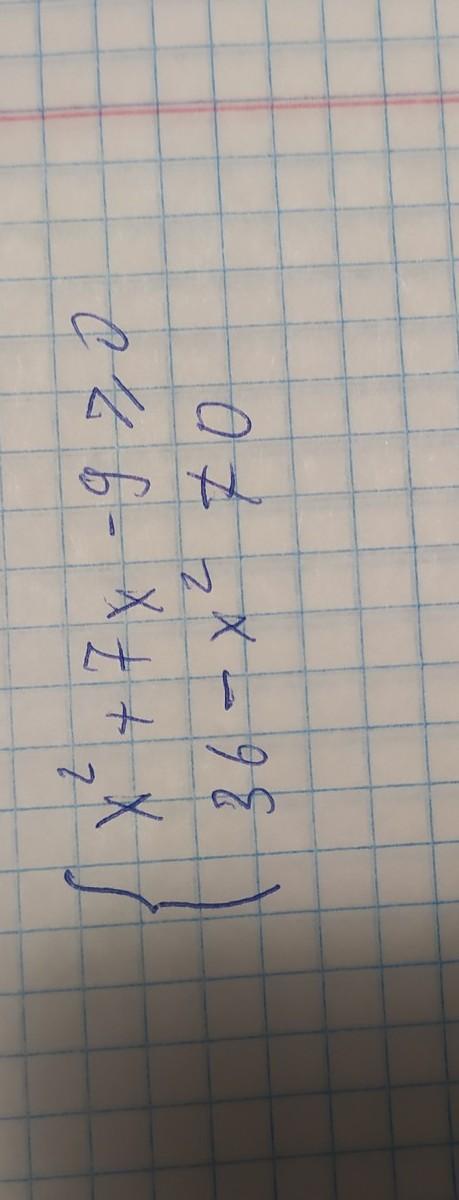 { x² + 7x - 9 ⩾ 0
36 - x² ≠ 0